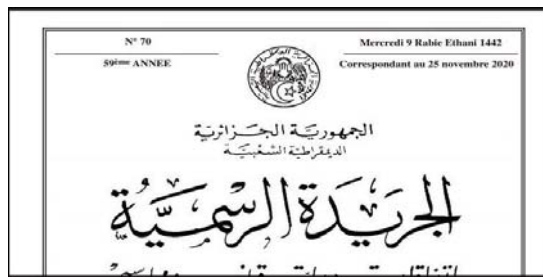 N° 70
Mercredi 9 Rabie Ethani 1442
59ème ANNEE
Correspondant au 25 novembre 2020
الجمهورية الجزائرية
الديمقراطية الشعبية
الجريدة الرسمية